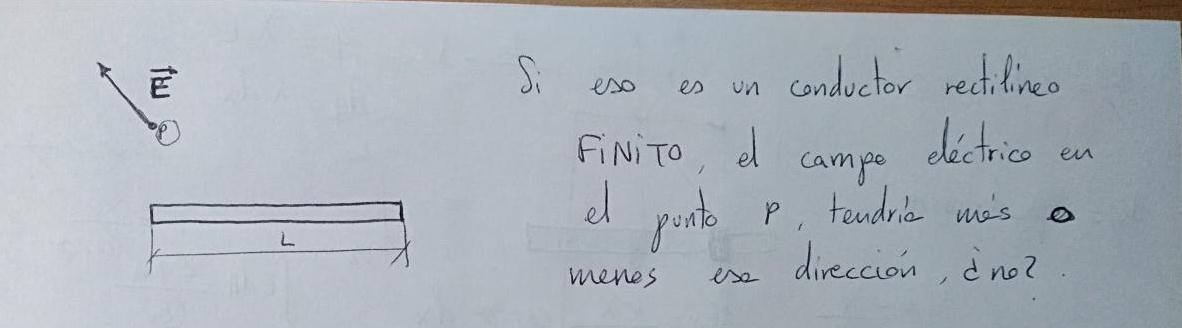 E
P
L
Si eso es un conductor rectilíneo
FiNiTO, el campo eléctrico en
el punto P, tendría más o
menos esa dirección, ¿no?.